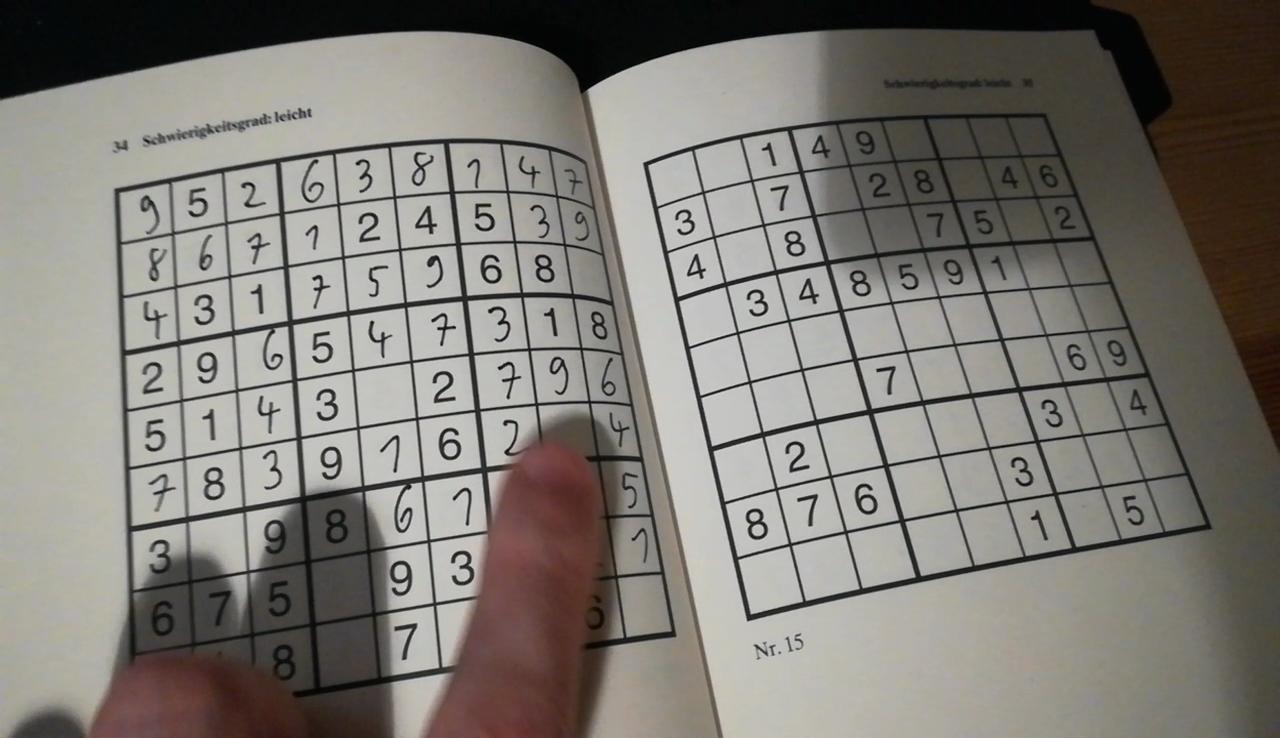 34 Schwierigkeitsgrad: leicht
9 5 2 6 3 8 1 4 7
8 6 7 1 2 4 5 3 9
4 3 1 7 5 9 6 8
2 9 6 5 4 7 3 1 8
5 1 4 3 2 7 9 6
7 8 3 9 1 6 2 4
3 9 8 6 1 5
6 7 5 9 3 1
8 7 6
Schwierigkeitsgrad: leicht
1 4 9
3 7 2 8 4 6
4 8 7 5 2
3 4 8 5 9 1
7 6 9
2 3 4
8 7 6 3
1 5
Nr. 15